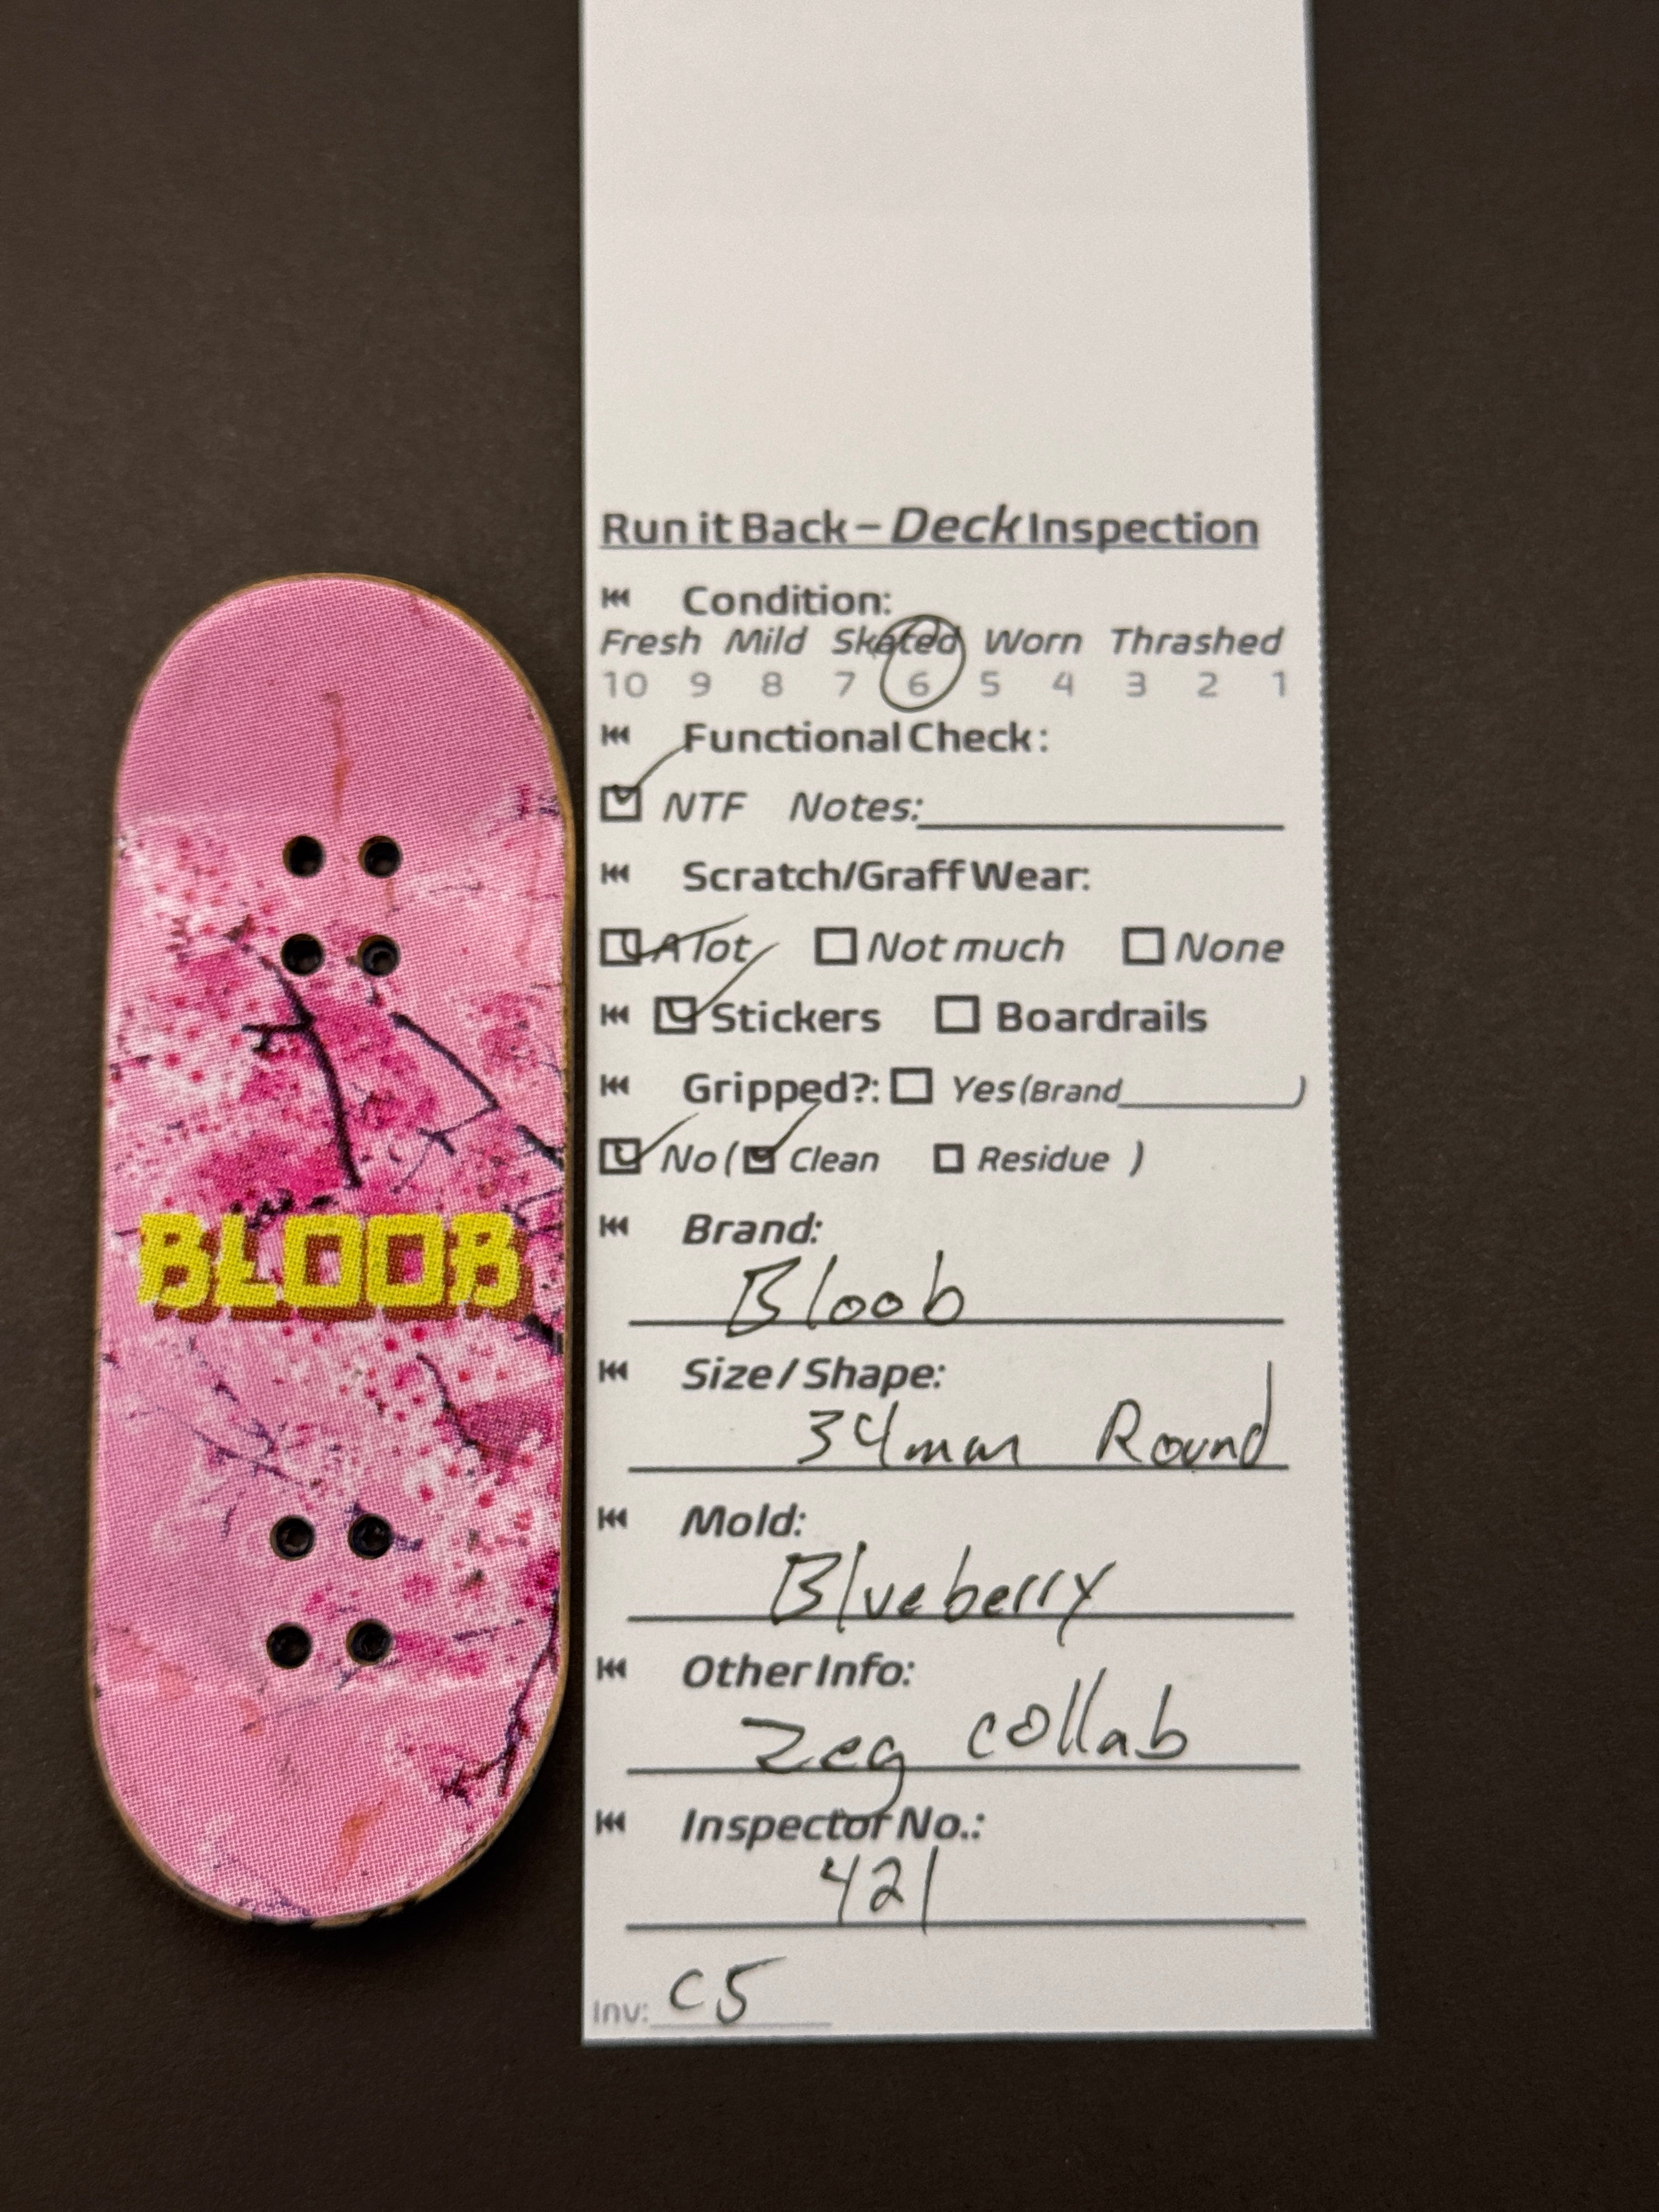 BLOOB
Run it Back – Deck Inspection
Condition:
Fresh Mild Skated Worn Thrashed
10 9 8 7 6 5 4 3 2 1
Functional Check:
NTF Notes:
Scratch/Graff Wear:
A lot Not much None
Stickers Boardrails
Gripped?: Yes (Brand )
No ( Clean Residue )
Brand:
Bloob
Size / Shape:
34mm Round
Mold:
Blueberry
Other Info:
Zeg collab
Inspector No.:
421
Inv: C5